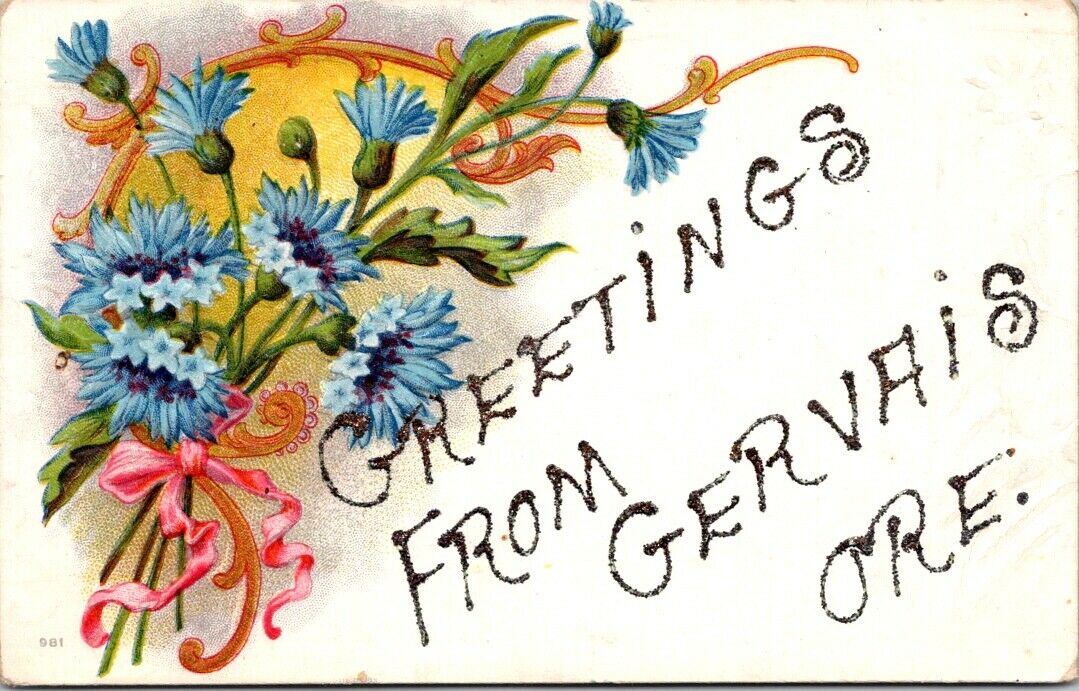 GREETiNGS
FROM GERVAiS
ORE.
981